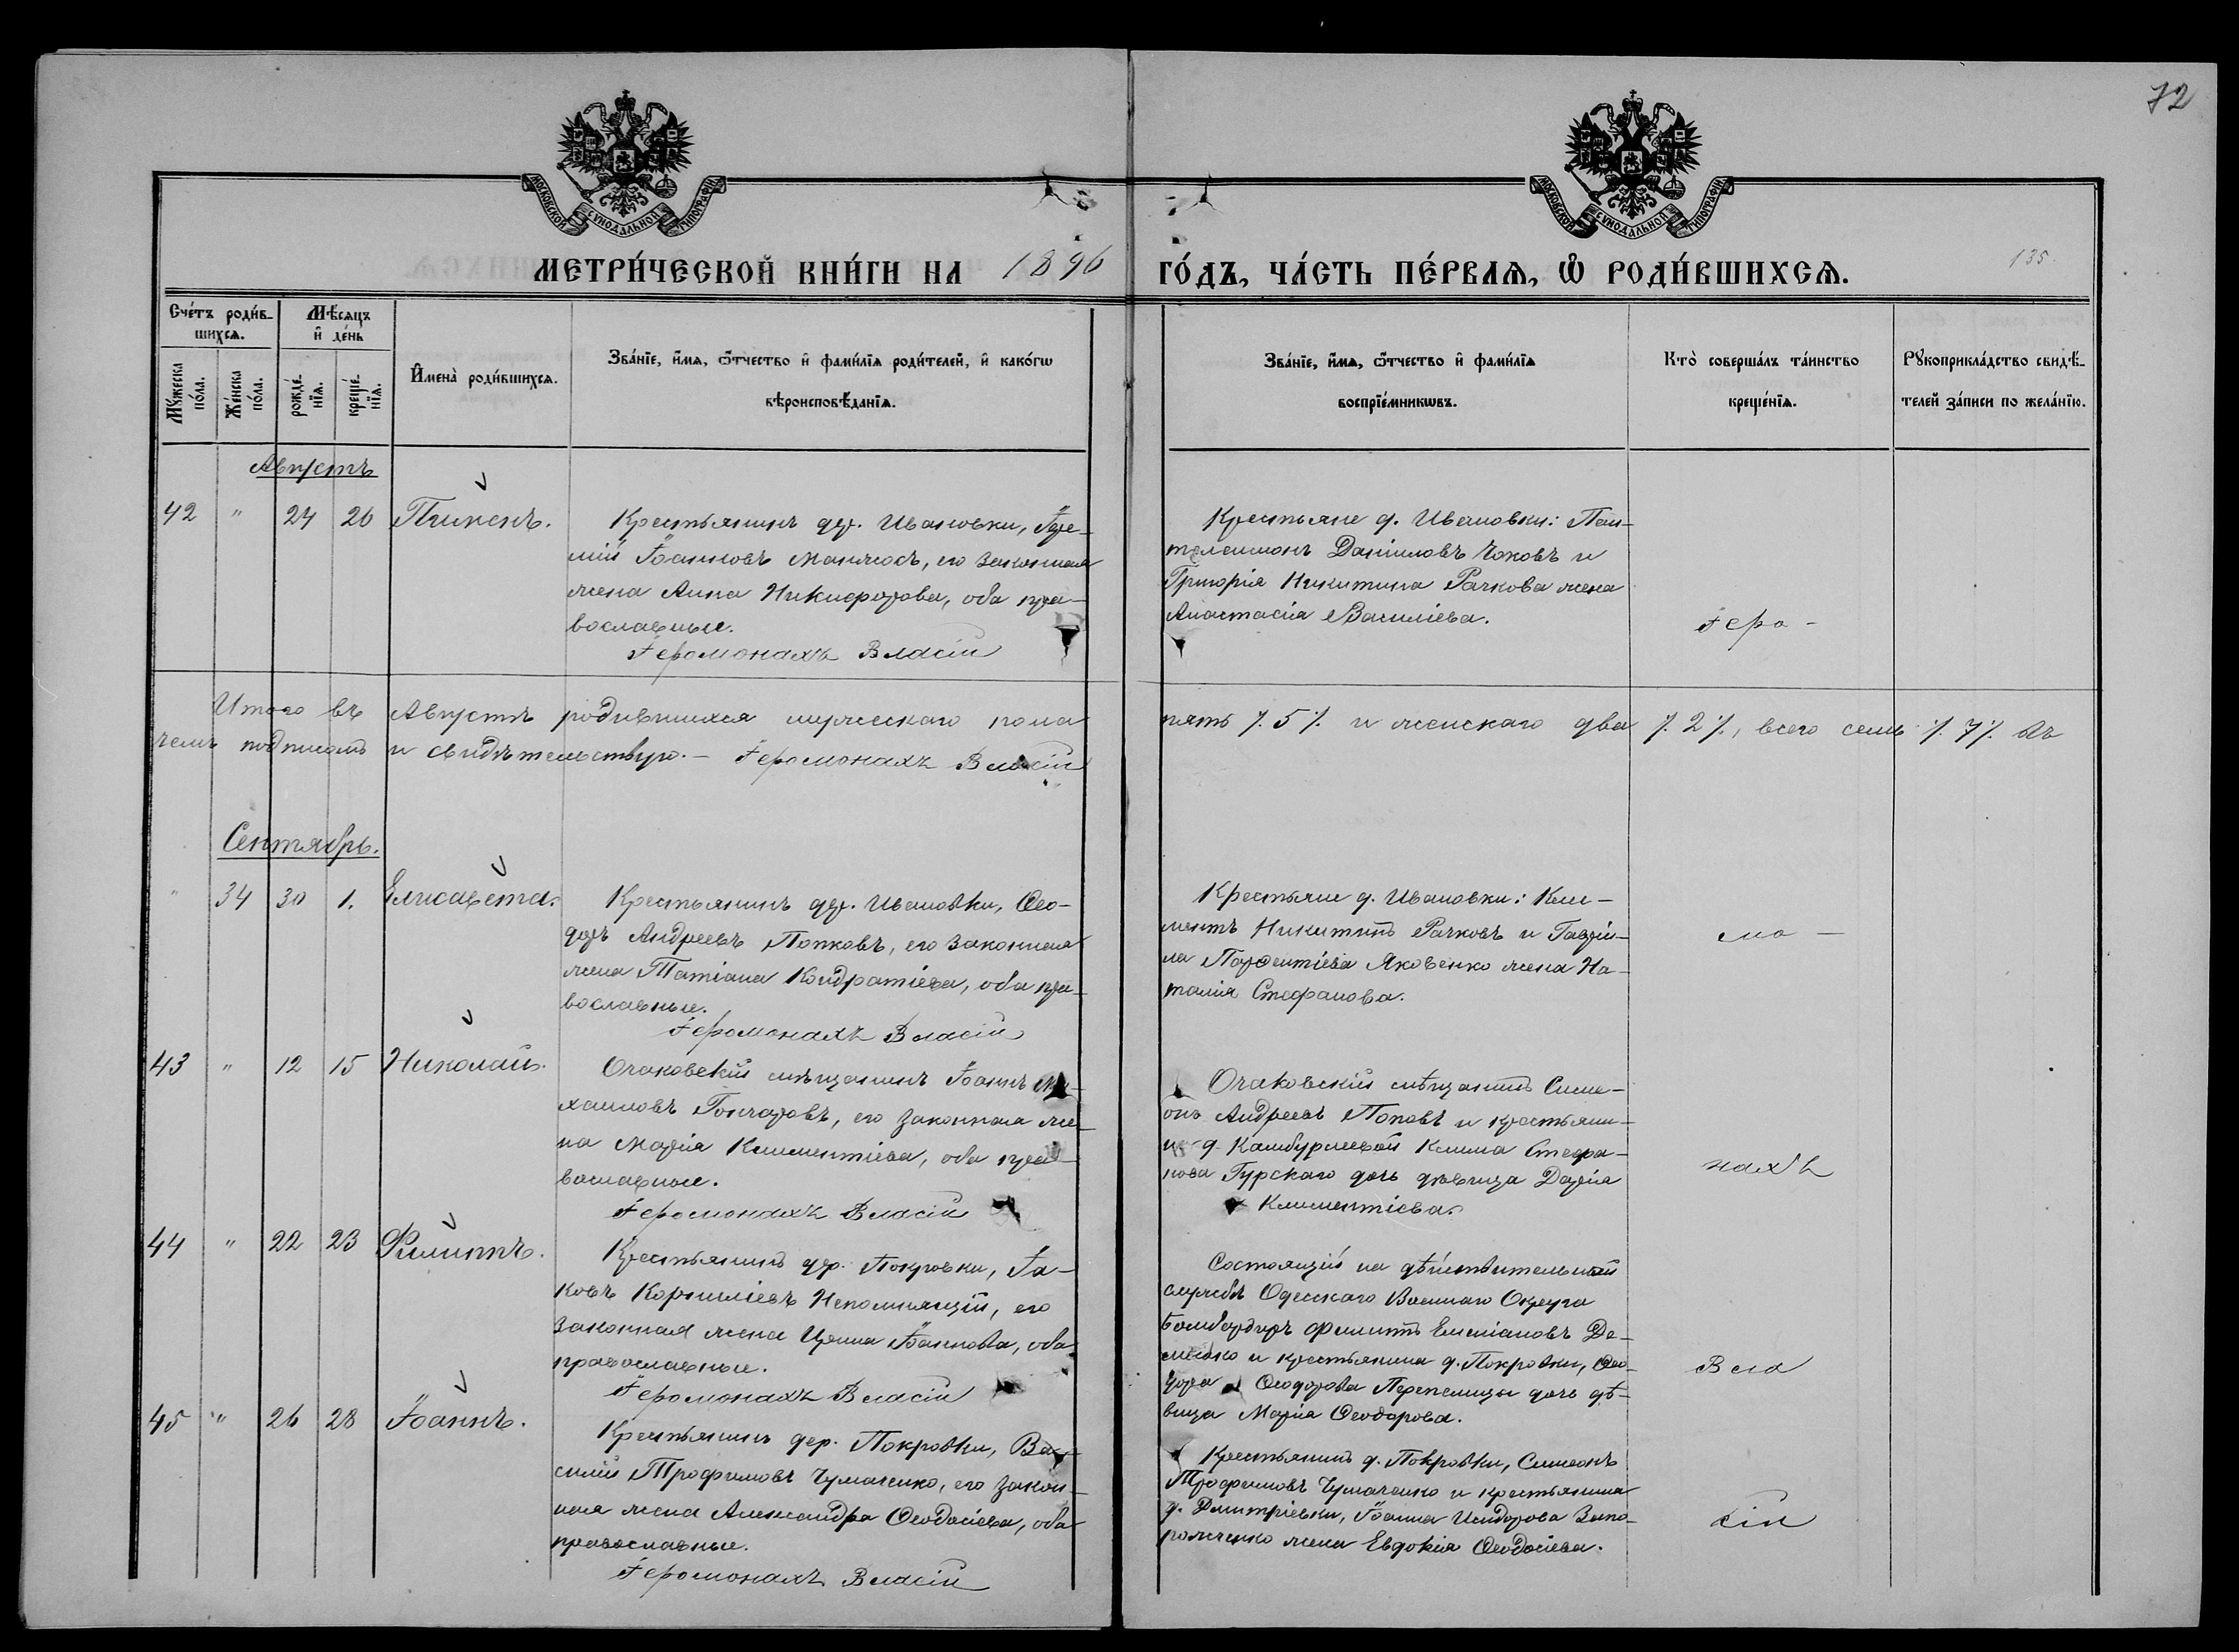 72
МОСКОВСКОЙ СѴНОДАЛЬНОЙ ТИПОГРАФІИ
МОСКОВСКОЙ СѴНОДАЛЬНОЙ ТИПОГРАФІИ
МЕТРИ́ЧЕСКОЙ КНИ́ГИ НА 1896 ГО́ДЪ, ЧА́СТЬ ПЕ́РВАЯ, Ѽ РОДИ́ВШИХСѦ.
135.
Сче́тъ роди́в-
шихсѧ.
Мѣ́сяцъ
и҆ де́нь
Мꙋ́жеска
по́ла.
Же́нска
по́ла.
рожде́-
нїѧ.
креще́-
нїѧ.
И҆мена̀ роди́вшихсѧ.
Зва́нїе, и҆́мѧ, ѻ҆́тчество и҆ фами́лїѧ роди́телей, и҆ како́гѡ
вѣроисповѣ́данїѧ.
Зва́нїе, и҆́мѧ, ѻ҆́тчество и҆ фами́лїѧ
воспрїе́мникѡвъ.
Кто̀ соверша́лъ та́инство
креще́нїѧ.
Рꙋкоприкла́дство свидѣ́-
телей за́писи по жела́нїю.
Августъ
42 " 24 26 Пименъ.
Крестьянинъ дер. Ивановки, Іере-
мій Іоанновъ Манжосъ, его законная
жена Анна Никифорова, оба пра-
вославные.
Іеромонахъ Власій
Крестьяне д. Ивановки: Пан-
телеимонъ Даніиловъ Чоковъ и
Григорія Никитина Рачкова жена
Анастасія Василіева.
Іеро-
Итого въ Августѣ родившихся мужескаго пола пять /. 5 /. и женскаго два /. 2 /., всего семь /. 7 /. Въ
чемъ подписомъ и свидѣтельствую. - Іеромонахъ Власій
Сентябрь.
" 34 30 1. Елисавета.
Крестьянинъ дер. Ивановки, Ѳео-
доръ Андреевъ Попковъ, его законная
жена Татіана Кондратіева, оба пра-
вославные.
Іеромонахъ Власій
Крестьяне д. Ивановки: Кли-
ментъ Никитинъ Рачковъ и Гавріи-
ла Парѳентіева Яковенко жена На-
талія Стефанова.
мо-
43 " 12 15 Николай.
Очаковскій мѣщанинъ Іоаннъ Ми-
хаиловъ Гончаровъ, его законная же-
на Марія Климентіева, оба пра-
вославные.
Іеромонахъ Власій
Очаковскій мѣщанинъ Симе-
онъ Андреевъ Поповъ и крестьяни-
на д. Камбурлеевой Клима Стефа-
нова Гурскаго дочь дѣвица Дарія
Климентіева.
нахъ
44 " 22 23 Филиппъ.
Крестьянинъ дер. Покровки, Іа-
ковъ Корниліевъ Непомнящій, его
законная жена Ирина Іоаннова, оба
православные.
Іеромонахъ Власій
Состоящій на дѣйствительной
службѣ Одесскаго Военнаго Округа
Бомбардиръ Филиппъ Емиліановъ Де-
и крестьянина д. Покровки, Ѳео-
дора Ѳеодорова Перепелицы дочь дѣ-
вица Марія Ѳеодорова.
Вла
45 " 26 28 Іоаннъ.
Крестьянинъ дер. Покровки, Ва-
силій Трофимовъ Чумаченко, его закон-
ная жена Александра Ѳеодосіева, оба
православные.
Іеромонахъ Власій
Крестьянинъ д. Покровки, Симеонъ
Трофимовъ Чумаченко и крестьянина
д. Дмитріевки, Іоанна Исидорова Запо-
рожченко жена Евдокія Ѳеодосіева.
сій